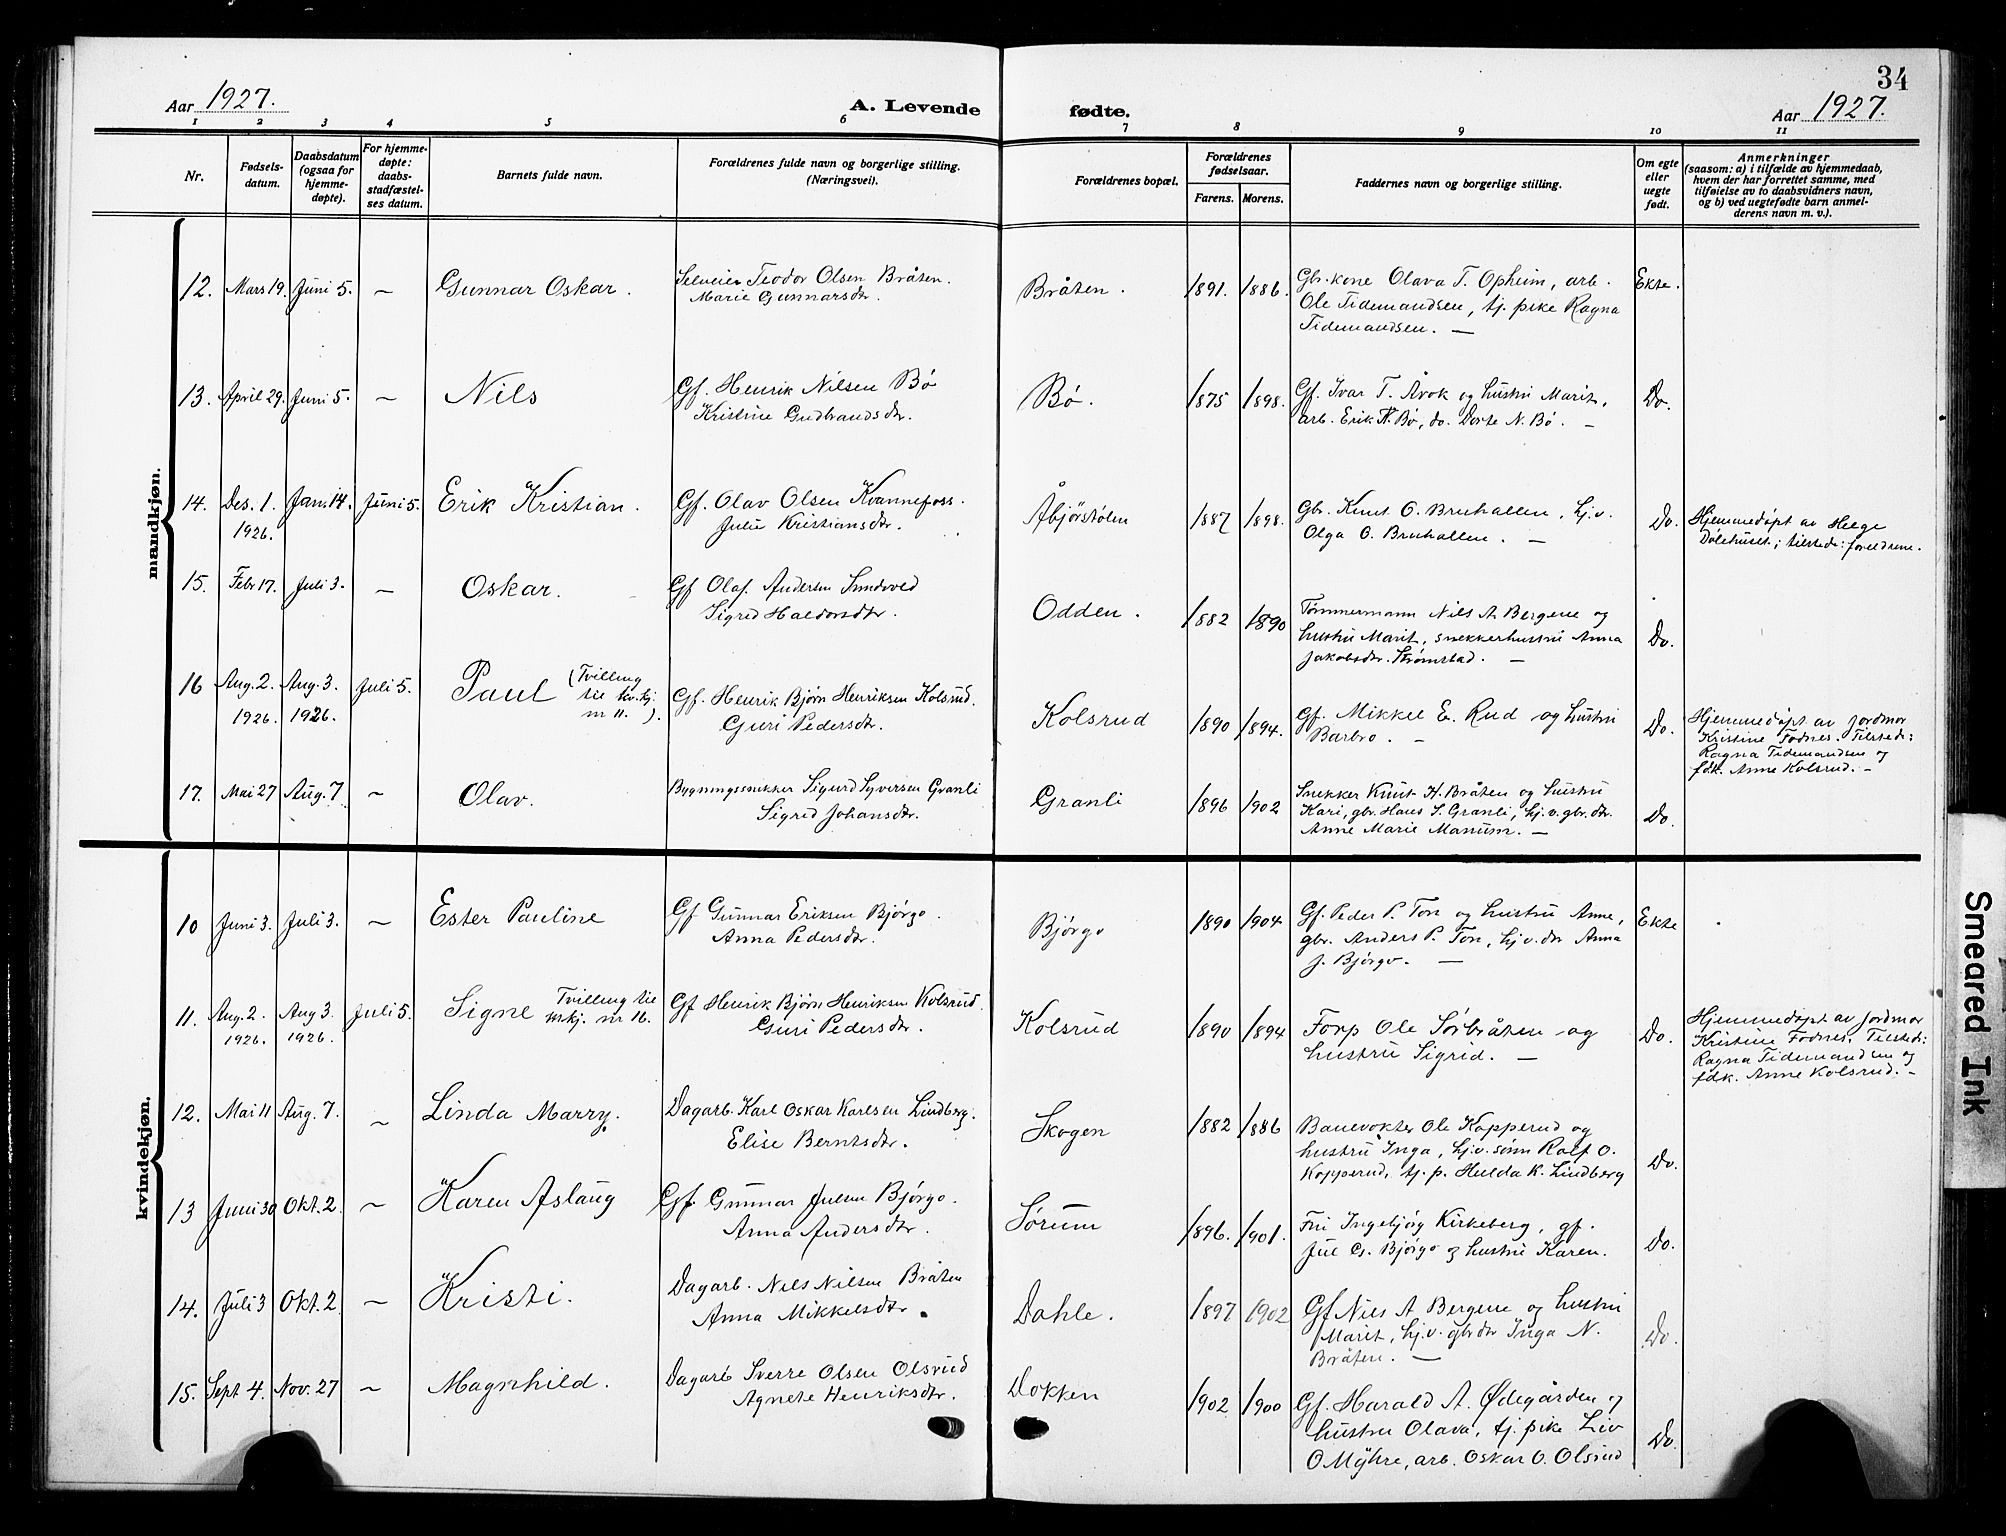 34
Aar 1927.
A. Levende
fødte.
Aar 1927.
1 2 3 4 5 6 7 8 9 10 11
Nr.
Fødsels-
datum.
Daabsdatum
(ogsaa for
hjemme-
døpte).
For hjemme-
døpte:
daabs-
stadfæstel-
ses datum.
Barnets fulde navn.
Forældrenes fulde navn og borgerlige stilling.
(Næringsvei).
Forældrenes bopæl.
Forældrenes
fødselsaar.
Farens. Morens.
Faddernes navn og borgerlige stilling.
Om egte
eller
uegte
født.
Anmerkninger
(saasom: a) i tilfælde av hjemmedaab,
hvem der har forrettet samme, med
tilføielse av to daabsvidners navn,
og b) ved uegtefødte barn anmel-
derens navn m. v.).
mandkjøn.
12. Mars 19. Juni 5. — Gunnar Oskar.
Selveier Teodor Olsen Bråten.
Marie Gunnarsdtr.
Bråten. 1891. 1886.
Gbr. kone Olava T. Opheim, arb.
Ole Tidemandsen, tj. pike Ragna
Tidemandsen. —
Ekte.
13. April 29. Juni 5. — Nils
Gf. Henrik Nilsen Bø
Kristine Gudbrandsdtr.
Bø. 1875 1898.
Gf. Ivar T. Åvok og hustru Marit,
arb. Erik N. Bø, do. Dorte N. Bø. —
Do.
14. Des. 1. Jan. 14. Juni 5. Erik Kristian.
1926.
Gf. Olav Olsen Kvannefoss.
Julie Kristiansdtr.
Åbjørstølen 1887 1898.
Gbr. Knut O. Bruhallen, hj.v.
Olga O. Bruhallen. —
Do.
Hjemmedøpt av Helge
Dølehuset; tilstede: foreldrene.
15. Febr 17. Juli 3. — Oskar.
Gf Olaf Andersen Sundvold
Sigrid Haldorsdtr.
Odden. 1882 1890
Tømmermann Nils A. Bergene og
hustru Marit, snekkerhustru Anna
Jakobsdtr. Strømstad. —
Do.
16 Aug. 2. Aug. 3. Juli 5. Paul (Tvilling
1926. 1926. til kv.kj.
nr 11.).
Gf. Henrik Bjørn Henriksen Kolsrud.
Guri Pedersdtr.
Kolsrud 1890 1894.
Gf. Mikkel E. Rud og hustru
Barbro. —
Do.
Hjemmedøpt av jordmor
Kristine Fodnes. Tilstede:
Ragna Tidemandsen og
fdk. Anne Kolsrud. —
17. Mai 27 Aug. 7 — Olav.
Bygningssnikker Sigurd Syversen Granli
Sigrid Johansdtr.
Granli 1896 1902
Snekker Knut H. Bråten og hustru
Kari, gbr. Hans S. Granli, hj.v. gbr. dtr.
Anne Marie Manum. —
Do.
kvindekjøn.
10 Juni 3. Juli 3. — Ester Pauline
Gf Gunnar Eriksen Bjørgo.
Anna Pedersdtr.
Bjørgo 1890 1904
Gf. Peder P. Ton og hustru Anne,
gbr. Anders P. Ton, hj.v. dtr Anna
J. Bjørgo. —
Ekte
11. Aug. 2. Aug 3. Juli 5. Signe Tvilling til
1926. 1926. mkj. nr 16.
Gf Henrik Bjørn Henriksen Kolsrud.
Guri Pedersdtr.
Kolsrud 1890 1894
Forp Ole Sørbråten og
hustru Sigrid. —
Do.
Hjemmedøpt av jordmor
Kristine Fodnes. Tilstede:
Ragna Tidemandsen og
fdk. Anne Kolsrud. —
12. Mai 11 Aug. 7. — Linda Marry.
Dagarb. Karl Oskar Karlsen Lindberg.
Elise Berntsdtr.
Skogen 1882 1886
Banevokter Ole Kopperud og
hustru Inga, hj.v. sønn Rolf O.
Kopperud, tj. p. Hulda K. Lindberg
Do.
13 Juni 30 Okt. 2 — Karen Aslaug
Gf. Gunnar Julsen Bjørgo.
Anna Andersdtr.
Sørum 1896. 1901.
Fru Ingebjøg Kirkeberg, gf.
Jul G. Bjørgo og hustru Karen.
Do.
14. Juli 3 Okt. 2. — Kristi.
Dagarb. Nils Nilsen Bråten
Anna Mikkelsdtr.
Dahle. 1897 1902
Gf Nils A. Bergene og hustru
Marit, hj.v. gbr dtr Inga N.
Bråten. —
Do.
15. Sept 4. Nov. 27 — Magnhild.
Dagarb Sverre Olsen Olsrud
Agnete Henriksdtr.
Dokken 1902 1900
Gf. Harald A. Ødegården og
hustru Olava, tj. pike Liv
O Myhre, arb. Oskar O. Olsrud
Do.
Smeared Ink